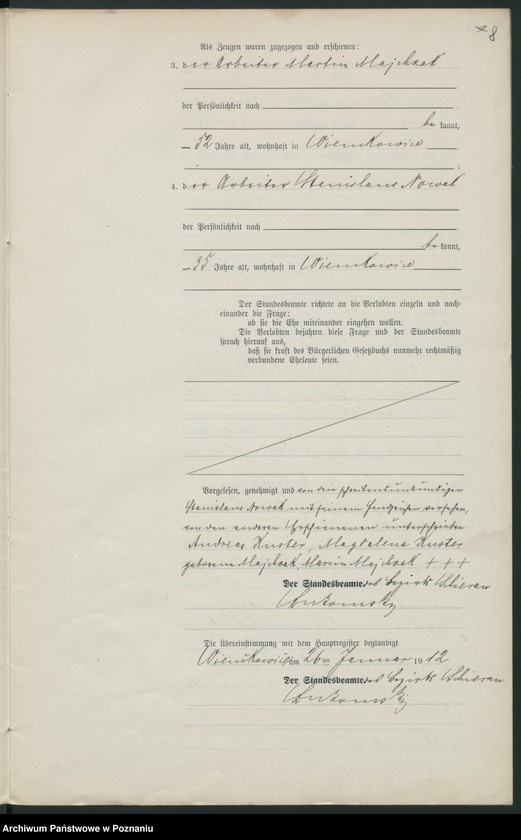 8
Als Zeugen waren zugezogen und erschienen:
3. der Arbeiter Martin Majchzak
der Persönlichkeit nach
be kannt,
52 Jahre alt, wohnhaft in Wienkowice
;
4. der Arbeiter Stanislaus Nowak
der Persönlichkeit nach
be kannt,
35 Jahre alt, wohnhaft in Wienkowice
.
Der Standesbeamte richtete an die Verlobten einzeln und nach-
einander die Frage:
ob sie die Ehe miteinander eingehen wollen.
Die Verlobten bejahten diese Frage und der Standesbeamte
sprach hierauf aus,
daß sie kraft des Bürgerlichen Gesetzbuchs nunmehr rechtmäßig
verbundene Eheleute seien.
Vorgelesen, genehmigt und von dem schreibensunkundigen
Stanislaus Nowak mit seinem Handzeichen versehen,
von den anderen Erschienenen unterschrieben
Andreas Kuster, Magdalena Kuster
geborene Majchzak, Marcin Majchzak + + +
Der Standesbeamte. des Bezirks
Die Übereinstimmung mit dem Hauptregister beglaubigt
Wienkowice am 26 ten Januar 19 12
Der Standesbeamte. des Bezirks
Archiwum Państwowe w Poznaniu